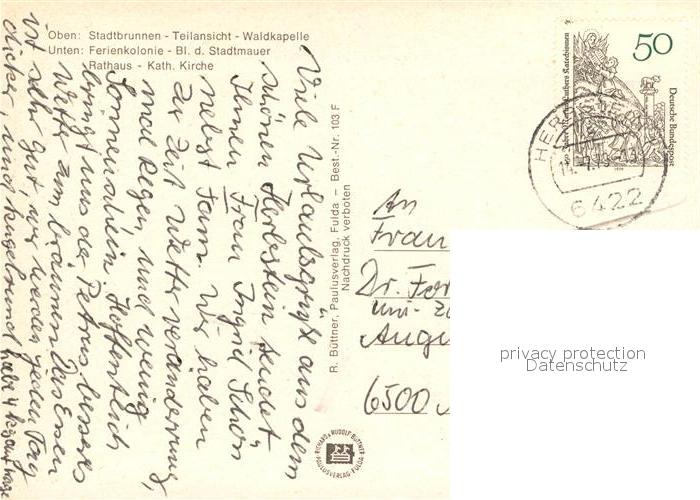 Oben: Stadtbrunnen - Teilansicht - Waldkapelle
Unten: Ferienkolonie - Bl. d. Stadtmauer
Rathaus - Kath. Kirche
Viele Urlaubsgrüße aus dem
schönen Herbstein sendet
Ihnen Frau Ingrid
nebst Fam. Wir haben
zur Zeit Wetterveränderung,
mal Regen, und wenig
Sonnenschein. Hoffentlich
bringt uns der Petrus besseres
Wetter zum bräunen. Das Essen
ist sehr gut, wir werden jeden Tag
dicker, und kugelrund
R. Büttner, Paulusverlag, Fulda - Best.-Nr. 103 F
Nachdruck verboten
RICHARD & RUDOLF BÜTTNER
PAULUSVERLAG FULDA
50
Deutsche Bundespost
Luthers Katechismus
6422
An
Frau
Dr.
Uni-
6500
privacy protection
Datenschutz